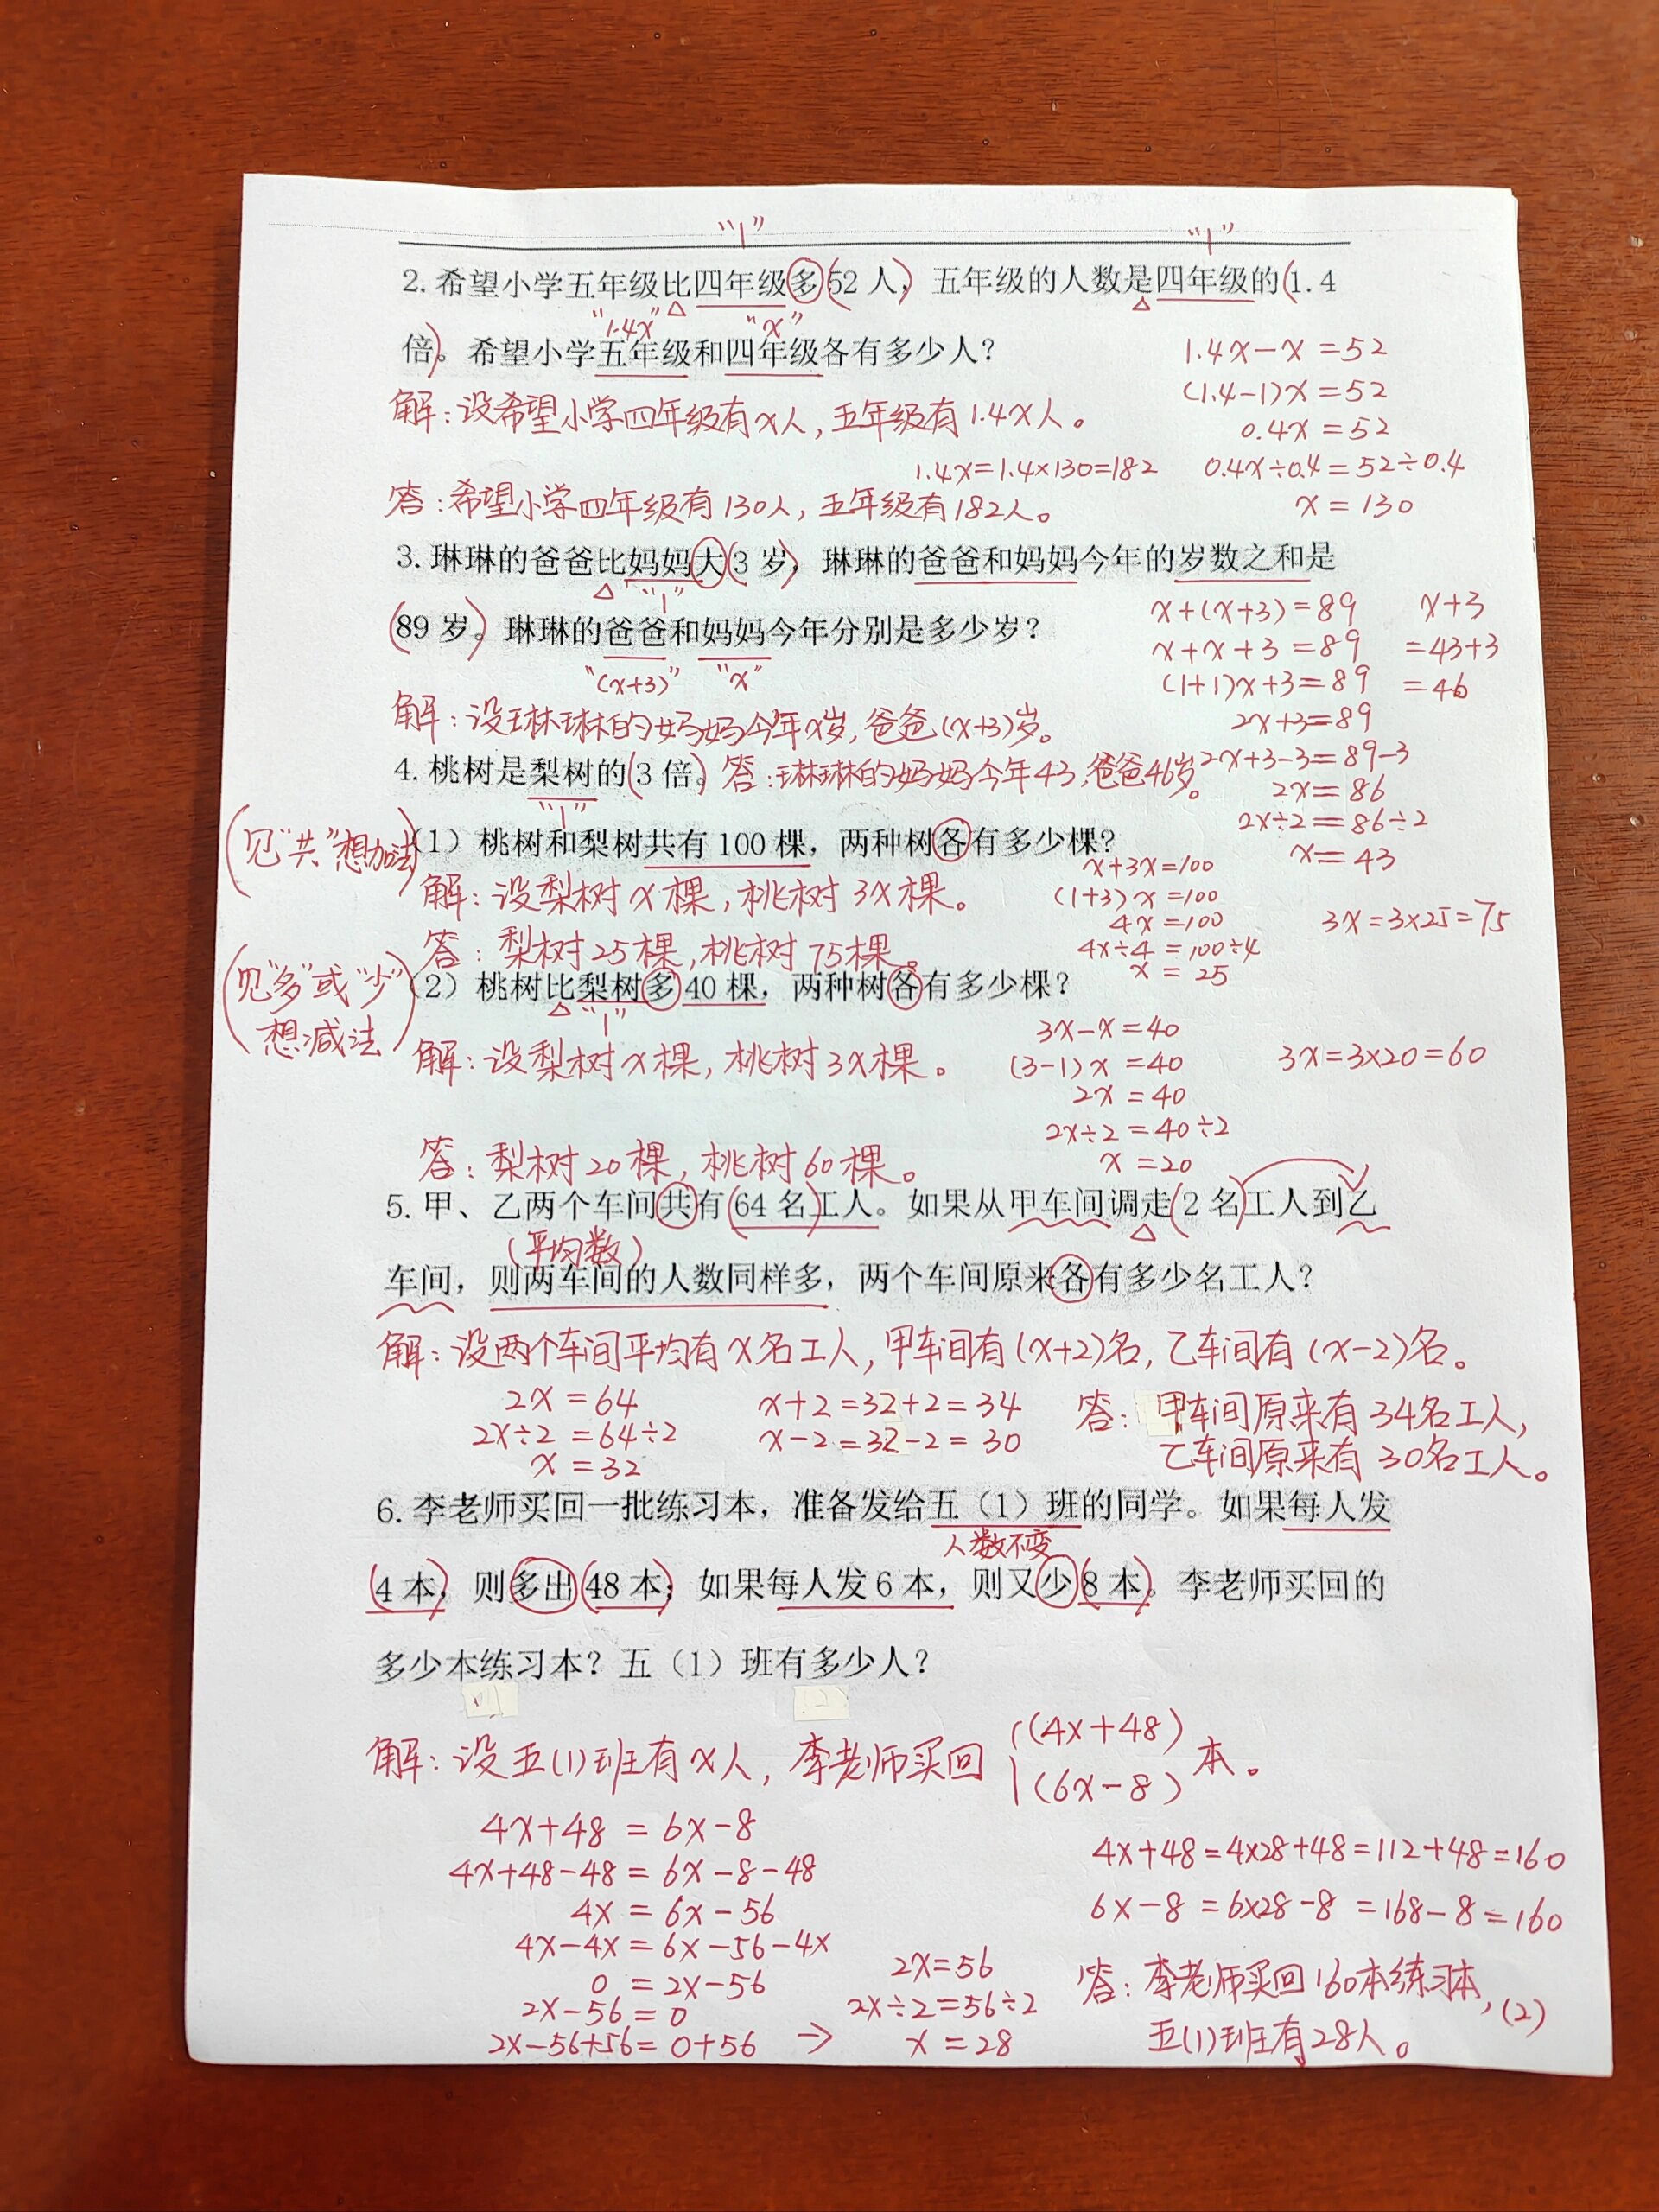 “1” “1”
2. 希望小学五年级比四年级多52人，五年级的人数是四年级的1.4
“1.4x” “x”
倍。希望小学五年级和四年级各有多少人？
1.4x－x＝52
解：设希望小学四年级有x人，五年级有1.4x人。
(1.4－1)x＝52
0.4x＝52
1.4x＝1.4×130＝182
0.4x÷0.4＝52÷0.4
答：希望小学四年级有130人，五年级有182人。
x＝130
3. 琳琳的爸爸比妈妈大3岁，琳琳的爸爸和妈妈今年的岁数之和是
“1”
89岁。琳琳的爸爸和妈妈今年分别是多少岁？
“(x+3)” “x”
x＋(x＋3)＝89
x＋x＋3＝89
(1＋1)x＋3＝89
2x＋3＝89
2x＋3－3＝89－3
2x＝86
2x÷2＝86÷2
x＝43
x＋3
＝43＋3
＝46
解：设琳琳的妈妈今年x岁，爸爸(x+3)岁。
答：琳琳的妈妈今年43，爸爸46岁。
4. 桃树是梨树的3倍。
“1”
(见“共”想加法)
（1）桃树和梨树共有100棵，两种树各有多少棵？
解：设梨树x棵，桃树3x棵。
x＋3x＝100
(1＋3)x＝100
4x＝100
4x÷4＝100÷4
x＝25
3x＝3×25＝75
答：梨树25棵，桃树75棵。
(见“多”或“少”
想减法)
（2）桃树比梨树多40棵，两种树各有多少棵？
“1”
解：设梨树x棵，桃树3x棵。
3x－x＝40
(3－1)x＝40
2x＝40
2x÷2＝40÷2
x＝20
3x＝3×20＝60
答：梨树20棵，桃树60棵。
5. 甲、乙两个车间共有64名工人。如果从甲车间调走2名工人到乙
(平均数)
车间，则两车间的人数同样多，两个车间原来各有多少名工人？
解：设两个车间平均有x名工人，甲车间有(x+2)名，乙车间有(x－2)名。
2x＝64
2x÷2＝64÷2
x＝32
x＋2＝32＋2＝34
x－2＝32－2＝30
答：甲车间原来有34名工人，
乙车间原来有30名工人。
6. 李老师买回一批练习本，准备发给五（1）班的同学。如果每人发
人数不变
4本，则多出48本；如果每人发6本，则又少8本。李老师买回的
多少本练习本？五（1）班有多少人？
解：设五(1)班有x人，李老师买回{(4x＋48) (6x－8)本。
4x＋48＝6x－8
4x＋48－48＝6x－8－48
4x＝6x－56
4x－4x＝6x－56－4x
0＝2x－56
2x－56＝0
2x－56＋56＝0＋56 →
2x＝56
2x÷2＝56÷2
x＝28
4x＋48＝4×28＋48＝112＋48＝160
6x－8＝6×28－8＝168－8＝160
答：李老师买回160本练习本，(2)
五(1)班有28人。